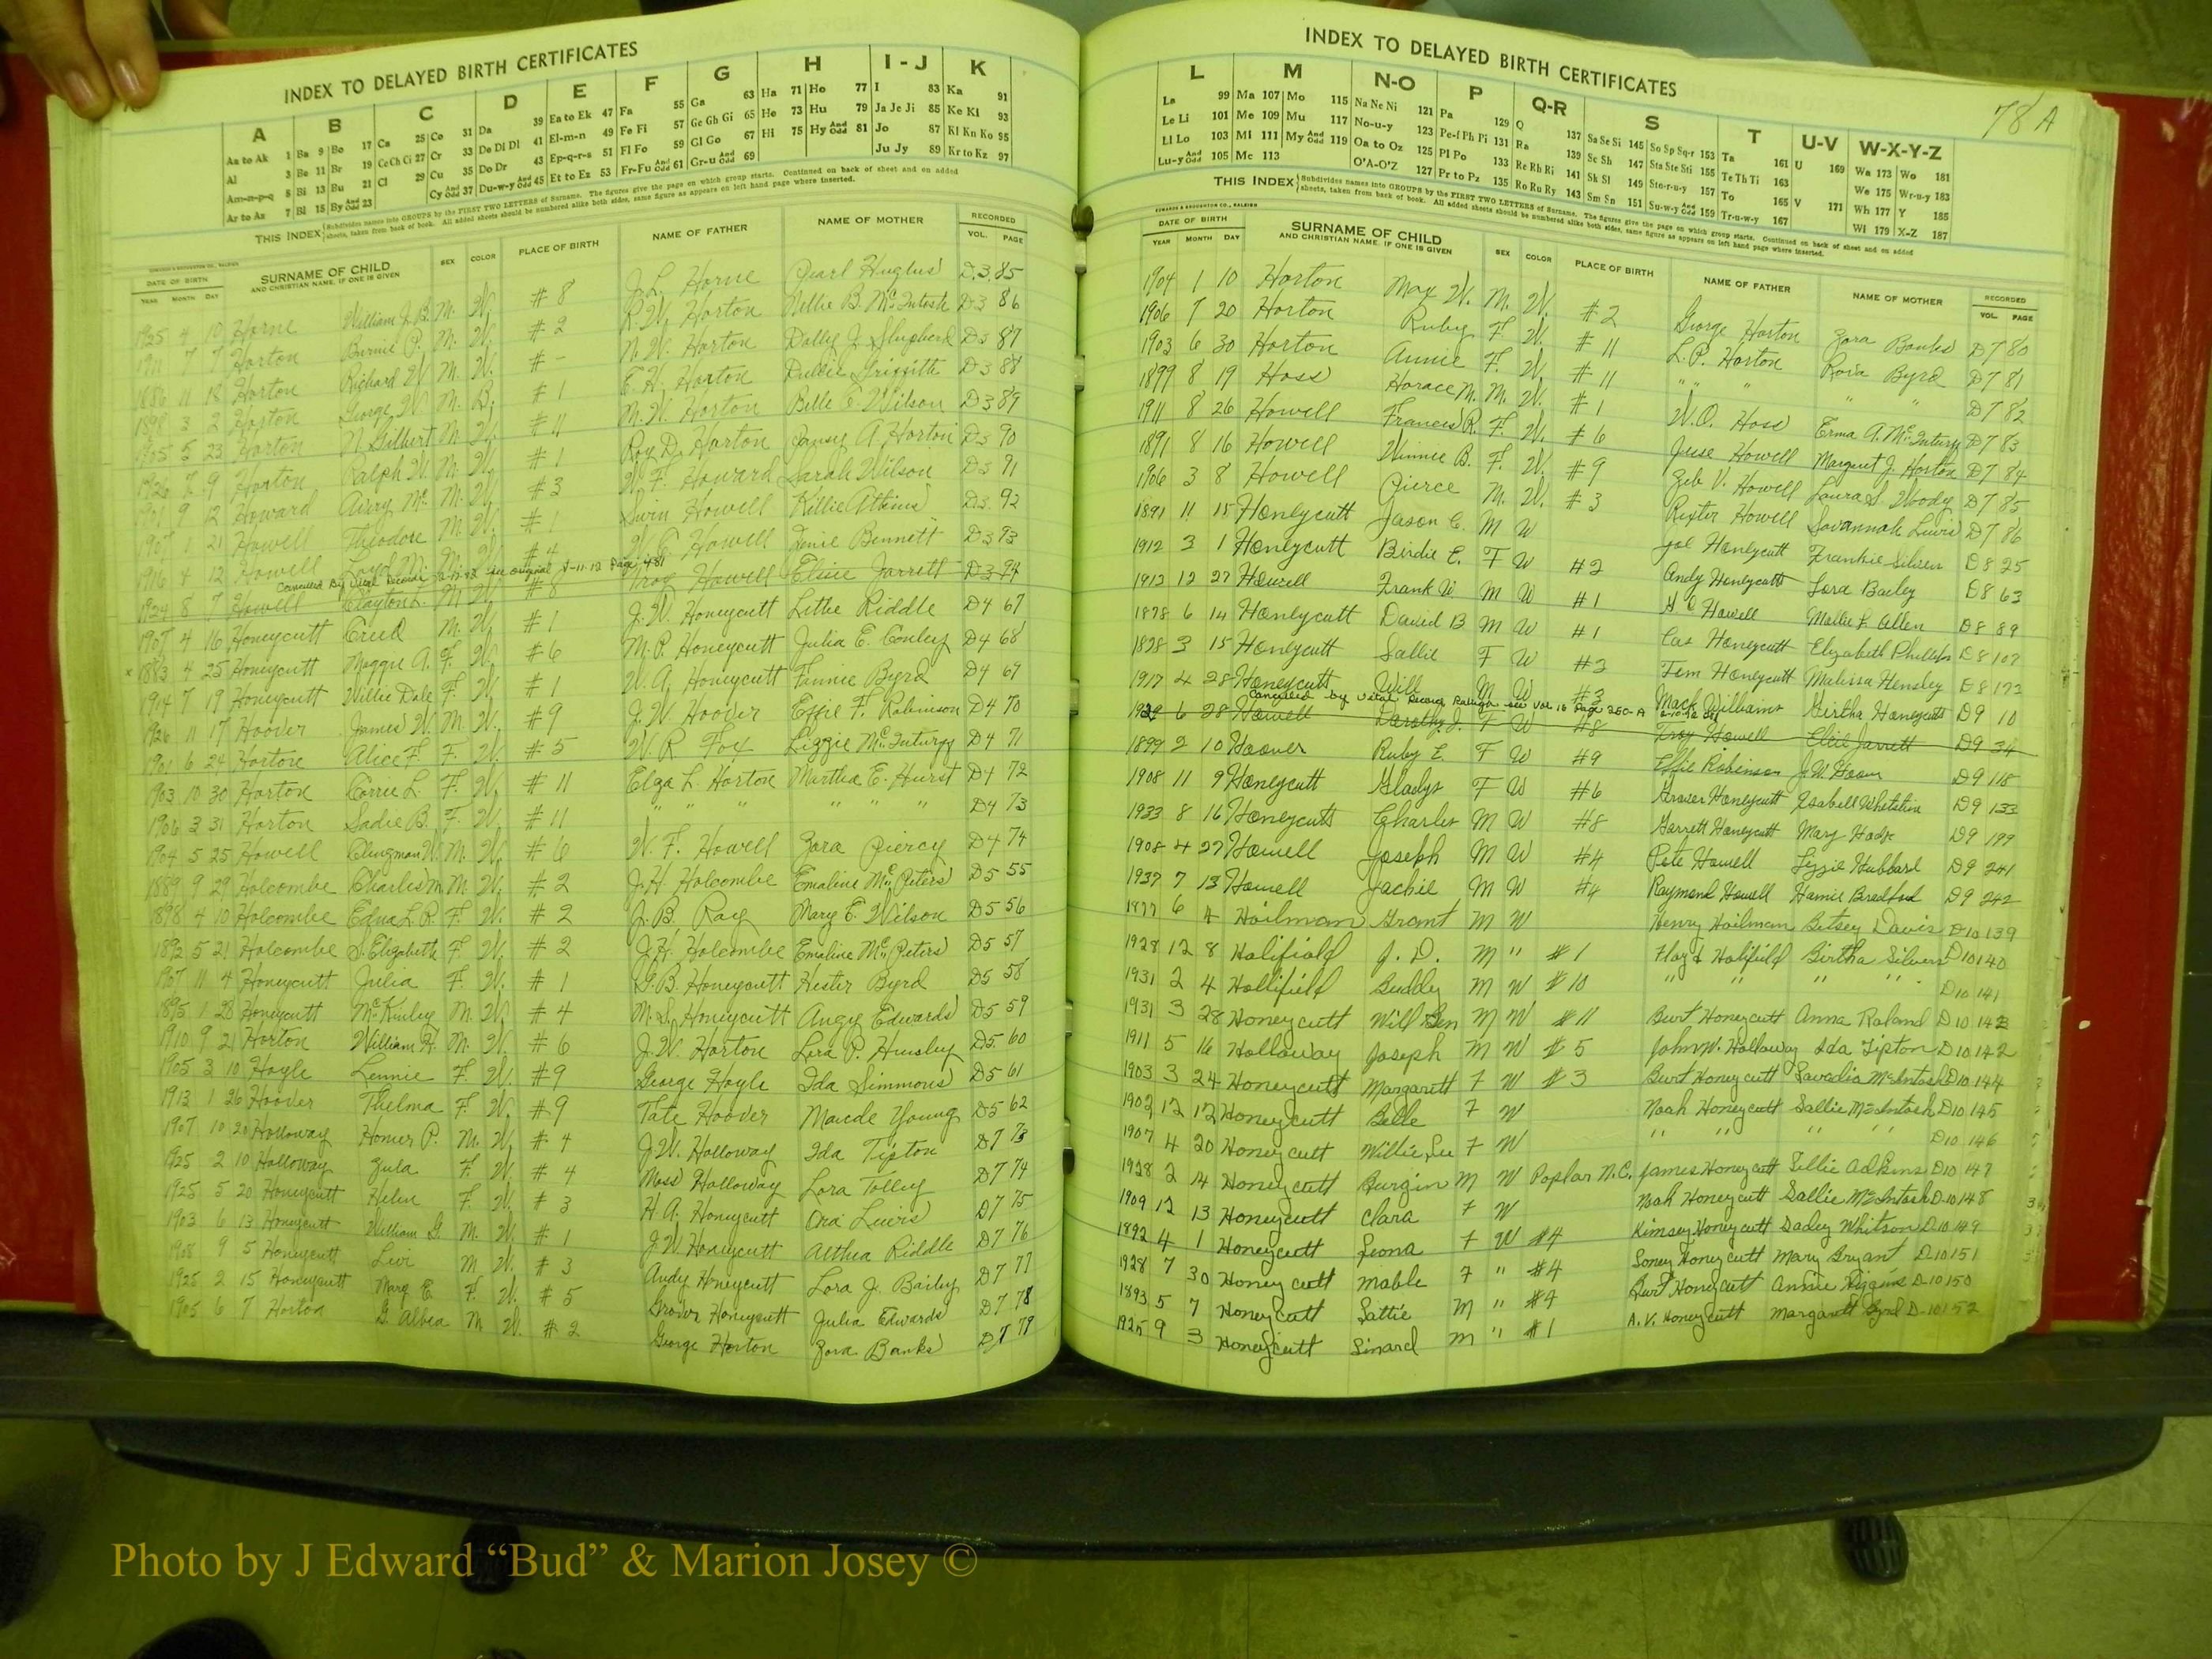 INDEX TO DELAYED BIRTH CERTIFICATES
A B C D E F G H I - J K
Aa to Ak 1 Ba 9 Bo 17 Ca 25 Co 31 Da 39 Ea to Ek 47 Fa 55 Ga 63 Ha 71 Ho 77 I 83 Ka 91
Al 3 Be 11 Br 19 Ce Ch Ci 27 Cr 33 De Di Dl 41 El-m-n 49 Fe Fi 57 Ge Gh Gi 65 He 73 Hu 79 Ja Je Ji 85 Ke Kl 93
Am-n-p-q 5 Bi 13 Bu 21 Cl 29 Cu 35 Do Dr 43 Ep-q-r-s 51 Fl Fo 59 Gl Go 67 Hi 75 Hy And Odd 81 Jo 87 Kl Kn Ko 95
Ar to Az 7 Bl 15 By And Odd 23 Cy And Odd 37 Du-w-y And Odd 45 Et to Ez 53 Fr-Fu And Odd 61 Gr-u And Odd 69 Ju Jy 89 Kr to Kz 97
THIS INDEX Subdivides names into GROUPS by the FIRST TWO LETTERS of Surname. The figures give the page on which group starts. Continued on back of sheet and on added
sheets, taken from back of book. All added sheets should be numbered alike both sides, same figure as appears on left hand page where inserted.
DATE OF BIRTH SURNAME OF CHILD SEX COLOR PLACE OF BIRTH NAME OF FATHER NAME OF MOTHER RECORDED
YEAR MONTH DAY AND CHRISTIAN NAME, IF ONE IS GIVEN VOL. PAGE
1925 4 10 Horne William J. B. M. W. # 8 J. L. Horne Pearl Hughes D.3. 85
1911 7 7 Horton Burnie P. M. W. # 2 R. W. Horton Nellie B. McIntosh D3 86
1886 11 18 Horton Richard W. M. W. # - N. W. Horton Dolly J. Shepherd D3 87
1898 3 2 Horton George W. M. B. # 1 E. H. Horton Griffith D3 88
1905 5 23 Horton N. Gilbert M. W. # 11 M. W. Horton Belle E. Wilson D3 89
1926 7 9 Horton Ralph W. M. W. # 1 Roy D. Horton Pansy A. Horton D3 90
1901 9 12 Howard Avery Mc. M. W. # 3 W. F. Howard Sarah Wilson D3 91
1907 1 21 Howell Theodore M. W. # 1 Howell Killie Atkins D3 92
1916 4 12 Howell M. W. # 4 W. E. Howell Zenie Bennett D3 93
Cancelled By Vital Records see original Page 481
1924 8 7 Howell Clayton L. M W # 8 Troy Howell Elsie Jarrett D3 94
1907 4 16 Honeycutt Creed M. W. # 1 J. W. Honeycutt Lettie Riddle D4 67
x 1883 4 25 Honeycutt Maggie A. F. W. # 6 M. P. Honeycutt Julia E. Conley D4 68
1914 7 19 Honeycutt Willie Dale F. W. # 1 W. A. Honeycutt Finnie Byrd D4 69
1926 11 17 Hoover James W. M. W. # 9 J. W. Hoover Effie F. Robinson D4 70
1901 6 24 Horton Alice F. F. W. # 5 W. R. Fox Lizzie McInturff D4 71
1903 10 30 Horton Corrie L. F. W. # 11 Elga L. Horton Martha E. Hurst D4 72
1906 3 31 Horton Sadie B. F. W. # 11 " " " " " " D4 73
1904 5 25 Howell Clingman W. M. W. # 6 W. F. Howell Zora Piercy D4 74
1889 9 29 Holcombe Charles M. M. W. # 2 J. H. Holcombe Emaline McPeters D5 55
1898 4 10 Holcombe Edna L. R. F. W. # 2 J. B. Ray Mary E. Wilson D5 56
1892 5 21 Holcombe S. Elizabeth F. W. # 2 J. H. Holcombe Emaline McPeters D5 57
1907 11 4 Honeycutt Julia F. W. # 1 G. B. Honeycutt Hester Byrd D5 58
1895 1 28 Honeycutt McKinley M. W. # 4 M. S. Honeycutt Angie Edwards D5 59
1910 9 21 Horton William H. M. W. # 6 J. W. Horton Lera P. Hensley D5 60
1905 3 10 Hoyle Lennie F. W. # 9 George Hoyle Ida Simmons D5 61
1913 1 26 Hoover Thelma F. W. # 9 Tate Hoover Maude Young D5 62
1907 10 20 Holloway Homer P. M. W. # 4 J. W. Holloway Ida Tipton D7 73
1925 2 10 Holloway Zula F. W. # 4 Moss Holloway Lora Tolley D7 74
1925 5 20 Honeycutt Helen F. W. # 3 H. A. Honeycutt Ora Lewis D7 75
1903 6 13 Honeycutt William G. M. W. # 1 J. W. Honeycutt Althea Riddle D7 76
1908 9 5 Honeycutt Levi M W. # 3 Andy Honeycutt Lora J. Bailey D7 77
1925 2 15 Honeycutt Mary E. F. W. # 5 Grover Honeycutt Julia Edwards D7 78
1905 6 7 Horton G. Albea M W. # 2 George Horton Zora Banks D7 79
78 A
INDEX TO DELAYED BIRTH CERTIFICATES
L M N-O P Q-R S T U-V W-X-Y-Z
La 99 Ma 107 Mo 115 Na Ne Ni 121 Pa 129 Q 137 Sa Se Si 145 So Sp Sq-r 153 Ta 161 U 169 Wa 173 Wo 181
Le Li 101 Me 109 Mu 117 No-u-y 123 Pe-f Ph Pi 131 Ra 139 Sc Sh 147 Sta Ste Sti 155 Te Th Ti 163 We 175 Wr-u-y 183
Ll Lo 103 Mi 111 My And Odd 119 Oa to Oz 125 Pl Po 133 Re Rh Ri 141 Sk Sl 149 Sto-r-u-y 157 To 165 V 171 Wh 177 Y 185
Lu-y And Odd 105 Mc 113 O'A-O'Z 127 Pr to Pz 135 Ro Ru Ry 143 Sm Sn 151 Su-w-y And Odd 159 Tr-u-w-y 167 Wi 179 X-Z 187
THIS INDEX Subdivides names into GROUPS by the FIRST TWO LETTERS of Surname. The figures give the page on which group starts. Continued on back of sheet and on added
sheets, taken from back of book. All added sheets should be numbered alike both sides, same figure as appears on left hand page where inserted.
EDWARDS & BROUGHTON CO., RALEIGH
DATE OF BIRTH SURNAME OF CHILD SEX COLOR PLACE OF BIRTH NAME OF FATHER NAME OF MOTHER RECORDED
YEAR MONTH DAY AND CHRISTIAN NAME, IF ONE IS GIVEN VOL. PAGE
1904 1 10 Horton Max W. M. W. # 2 George Horton Zora Banks D7 80
1906 7 20 Horton Ruby F. W. # 11 L. P. Horton Rosa Byrd D7 81
1903 6 30 Horton Annie F. W. # 11 " " " " " D7 82
1899 8 19 Hoss Horace M. M. W. # 1 W. O. Hoss Erma A. McInturff D7 83
1911 8 26 Howell Frances R. F. W. # 6 Jesse Howell Margaret J. Horton D7 84
1891 8 16 Howell Winnie B. F. W. # 9 Zeb V. Howell Laura S. Woody D7 85
1906 3 8 Howell Pierce M. W. # 3 Rexter Howell Savannah Lewis D7 86
1891 11 15 Honeycutt Jason C. M W Joe Honeycutt Frankie Silver D8 25
1912 3 1 Honeycutt Birdie E. F W #2 Andy Honeycutt Lora Bailey D8 63
1912 12 27 Howell Frank W. M W #1 H C Howell Mollie L. Allen D8 89
1878 6 14 Honeycutt David B M W #1 Cas Honeycutt Elizabeth Phillips D8 107
1828 3 15 Honeycutt Sallie F W #3 Tem Honeycutt Malissa Hensley D8 172
1917 4 28 Honeycutt Will M W #3 Mack Williams Girtha Honeycutt D9 10
Cancelled by Vital Records Raleigh see Vol 16 Page 250-A
1929 6 28 Howell Dorothy J. F W #8 Troy Howell Elsie Jarrett D9 34
1899 2 10 Hoover Ruby E. F W #9 Effie Robinson J. W. Hoover D9 118
1908 11 9 Honeycutt Gladys F W #6 Grover Honeycutt Isabell Whitson D9 133
1933 8 16 Honeycutt Charles M W #8 Garrett Honeycutt Mary Hodge D9 199
1908 4 27 Howell Joseph M W #4 Pete Howell Lizzie Hubbard D9 241
1937 7 13 Howell Jackie M W #4 Raymond Howell Mamie Bradford D9 242
1877 6 4 Hoilman Grant M W Henry Hoilman Betsey Davis D10 139
1928 12 8 Holifield J. D. M " #1 Floyd Holifield Birtha Silvers D10 140
1931 2 4 Hollifield Buddy M W #10 " " " " D10 141
1931 3 28 Honeycutt Will Ben M W #11 Burt Honeycutt Anna Roland D10 143
1911 5 16 Holloway Joseph M W #5 John W. Holloway Ida Tipton D10 142
1903 3 24 Honeycutt Margarett F W #3 Burt Honeycutt Savadia McIntosh D10 144
1902 12 12 Honeycutt Belle F W Noah Honeycutt Sallie McIntosh D10 145
1907 4 20 Honeycutt Willie Lee F W " " " " D10 146
1928 2 14 Honeycutt Burgin M W Poplar N.C. James Honeycutt Lillie Adkins D10 147
1909 12 13 Honeycutt Clara F W Noah Honeycutt Sallie McIntosh D-10 148
1892 4 1 Honeycutt Leona F W #4 Kimsey Honeycutt Sadey Whitson D10 149
1928 7 30 Honeycutt Mable F " #4 Soney Honeycutt Mary Bryant D10 151
1893 5 7 Honeycutt Lattie M " #9 Burt Honeycutt Annie Higgins D-10 150
1925 9 3 Honeycutt Sinard M " #1 A. V. Honeycutt Margarett Byrd D-10 152
Photo by J Edward “Bud” & Marion Josey ©